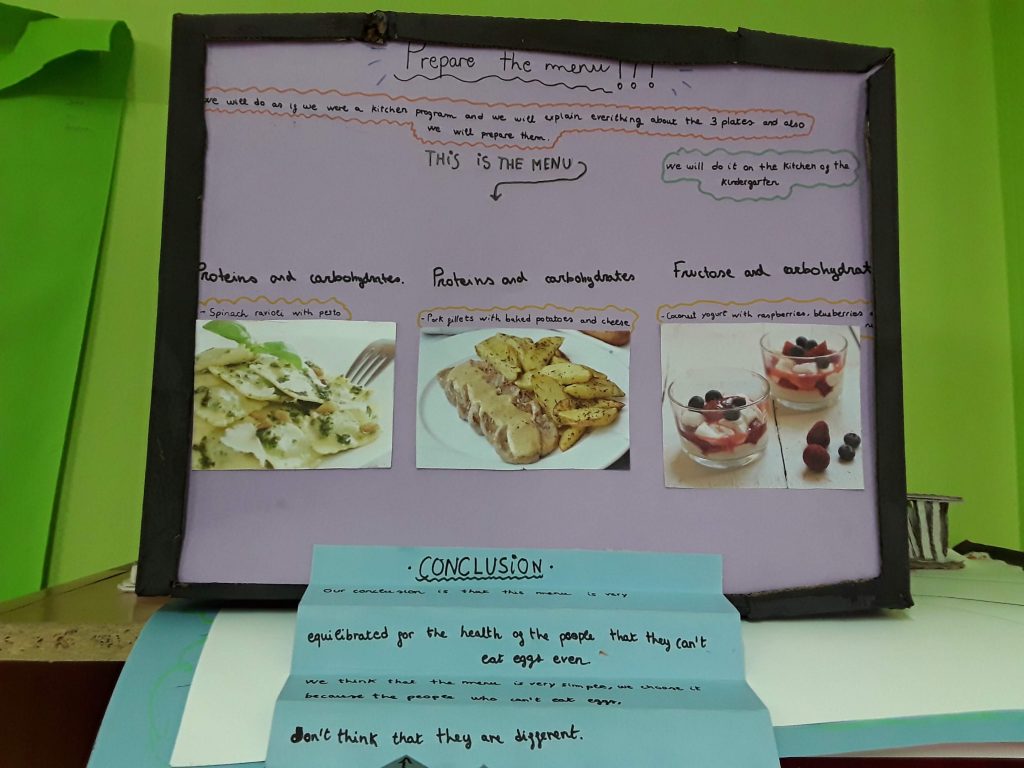 Prepare the menu!!!
we will do as if we were a kitchen program and we will explain everithing about the 3 plates and also
we will prepare them.
THIS IS THE MENU
we will do it on the kitchen of the
kindergarten
Proteins and carbohydrates.
Proteins and carbohydrates
Fructose and carbohydrat
- Spinach ravioli with pesto
- Pork fillets with baked potatoes and cheese
- Coconut yogurt with raspberries, blueberries
· CONCLUSION ·
Our conclusion is that this menu is very
equilibrated for the health of the people that they can't
eat eggs even.
We think that the menu is very simple, we choose it
because the people who can't eat eggs,
don't think that they are different.